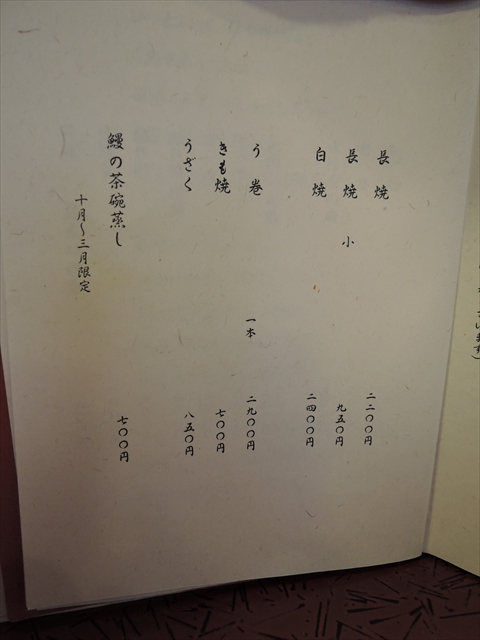 長焼 二二〇〇円
長焼 小 九五〇円
白焼 二四〇〇円
う巻 一本 二九〇〇円
きも焼 七〇〇円
うざく 八五〇円
鰻の茶碗蒸し 七〇〇円
十月～三月限定